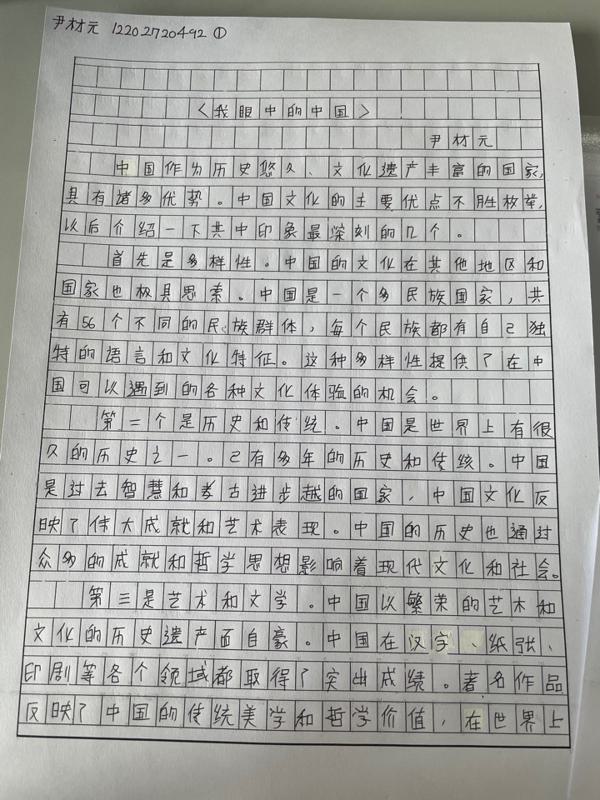 尹材元 12202720492 ①
<我眼中的中国>
尹材元
中国作为历史悠久、文化遗产丰富的国家,
具有诸多优势。中国文化的主要优点不胜枚举,
以后介绍一下共中印象最深刻的几个。
首先是多样性。中国的文化在其他地区和
国家也极具思索。中国是一个多民族国家,共
有56个不同的民族群体,每个民族都有自己独
特的语言和文化特征。这种多样性提供了在中
国可以遇到的各种文化体验的机会。
第二个是历史和传统。中国是世界上有很
久的历史之一。已有多年的历史和传统。中国
是过去智慧和考古进步越的国家,中国文化反
映了伟大成就和艺术表现。中国的历史也通过
众多的成就和哲学思想影响着现代文化和社会。
第三是艺术和文学。中国以繁荣的艺术和
文化的历史遗产而自豪。中国在汉字、纸张、
印刷等各个领域都取得了突出成绩。著名作品
反映了中国的传统美学和哲学价值,在世界上